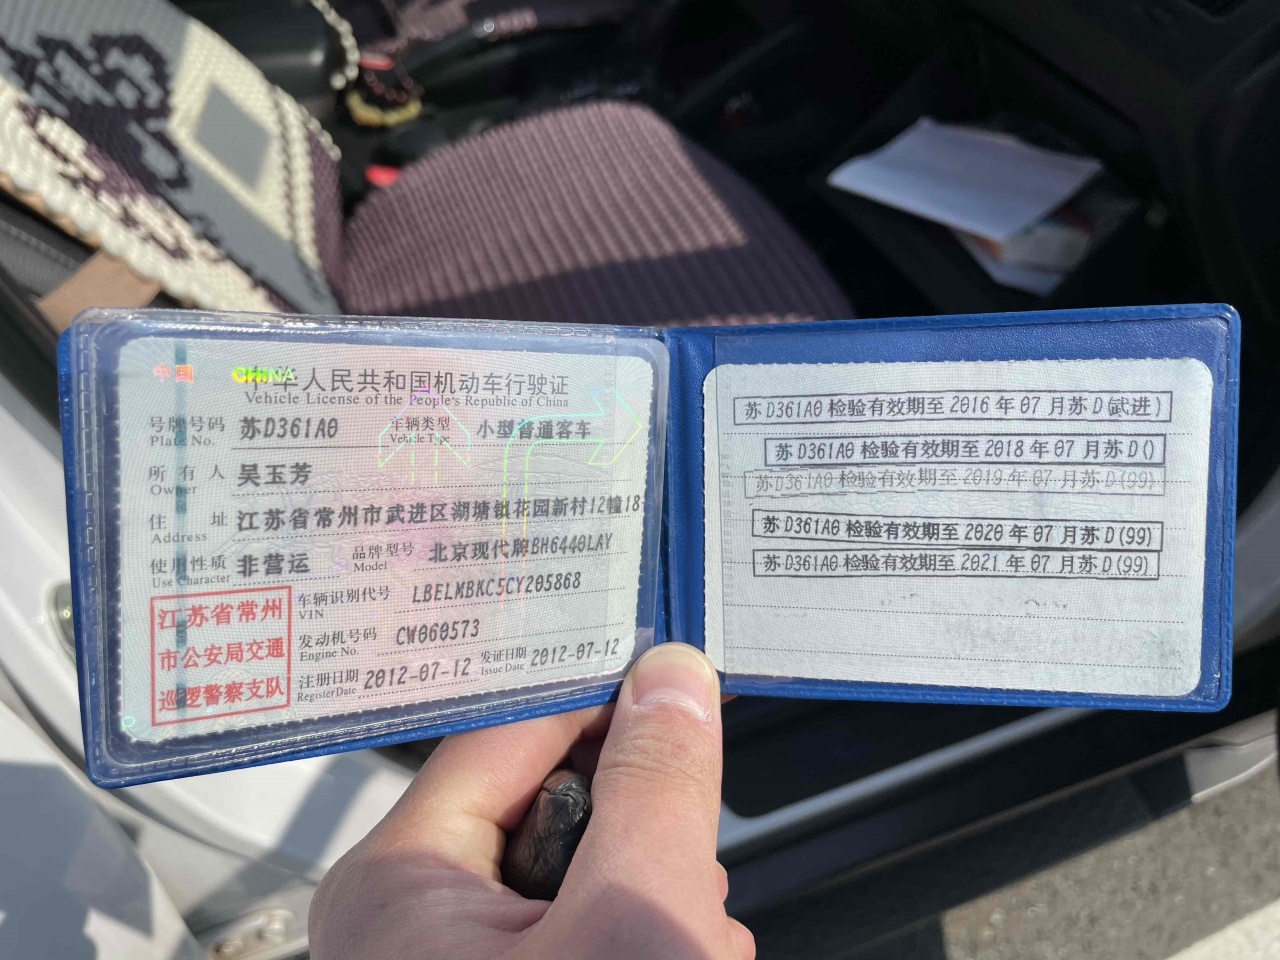 中国 CHINA
中华人民共和国机动车行驶证
Vehicle License of the People's Republic of China
号牌号码 苏D361A0 车辆类型 小型普通客车
Plate No. Vehicle Type
所有人 吴玉芳
Owner
住址 江苏省常州市武进区湖塘镇花园新村12幢18
Address
使用性质 非营运 品牌型号 北京现代牌BH6440LAY
Use Character Model
江苏省常州
市公安局交通
巡逻警察支队
车辆识别代号 LBELMBKC5CY205868
VIN
发动机号码 CW060573
Engine No.
注册日期 2012-07-12 发证日期 2012-07-12
Register Date Issue Date
苏D361A0 检验有效期至 2016 年 07 月苏 D(武进)
苏D361A0 检验有效期至 2018 年 07 月苏 D()
苏D361A0 检验有效期至 2019 年 07 月苏 D(99)
苏D361A0 检验有效期至 2020 年 07 月苏 D(99)
苏D361A0 检验有效期至 2021 年 07 月苏 D(99)